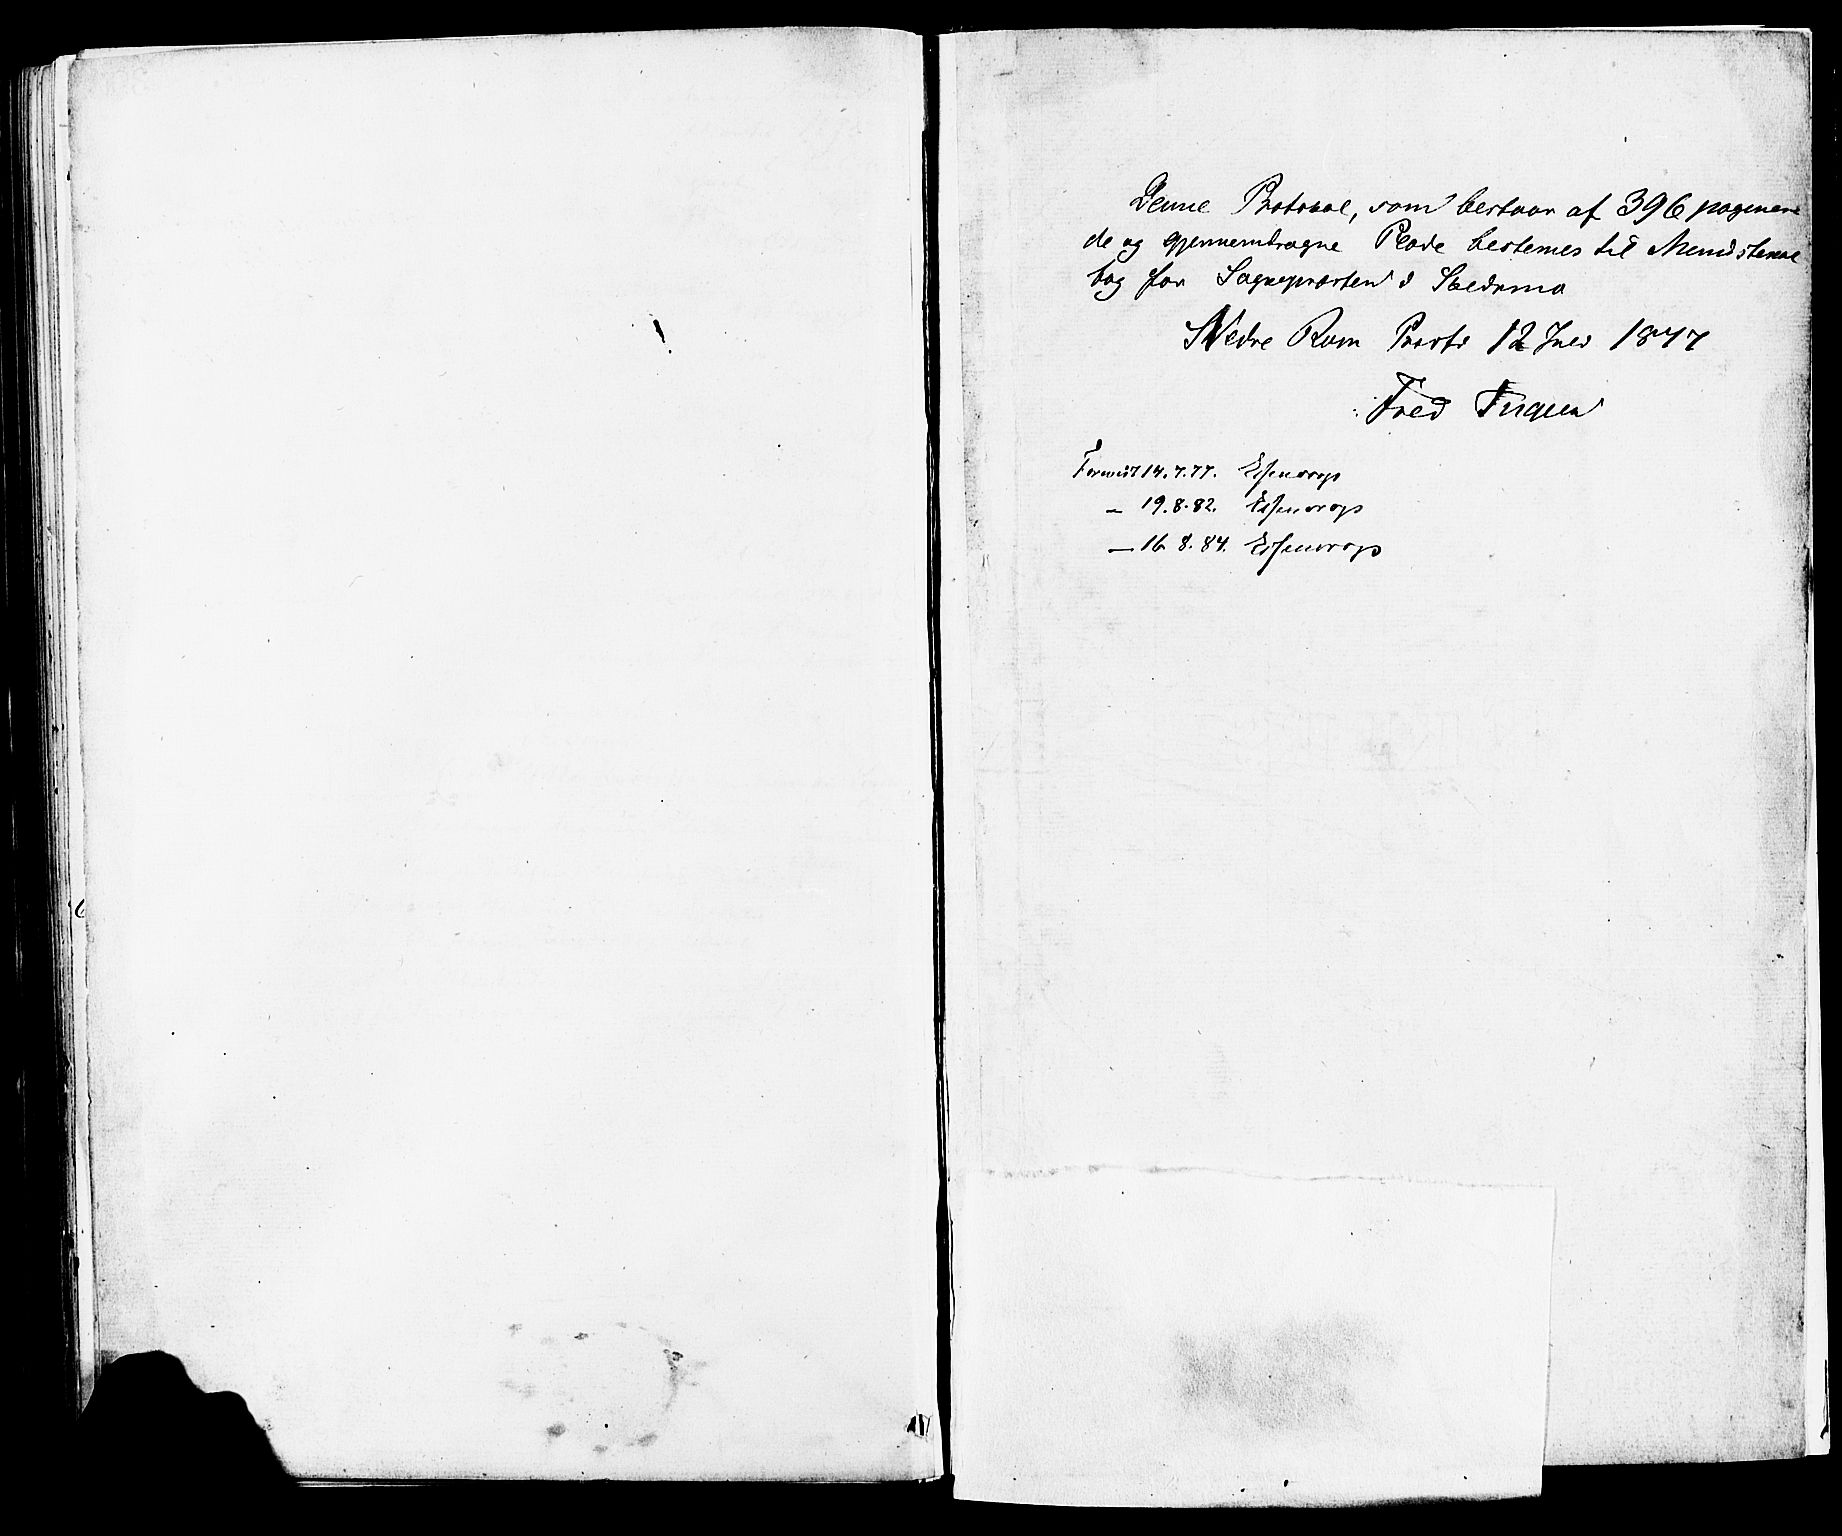 Denne Protocol, som bestaar af 396 paginere
de og gjennemdragne Blade bestemes til Ministerial
bog for Sognepræsten i Skedsmo
Nedre Rom Provsti 12 Juli 1877
Fred
Forevist 14.7.77. Essendrop
— 19.8.82. Essendrop
— 16 8.84. Essendrop